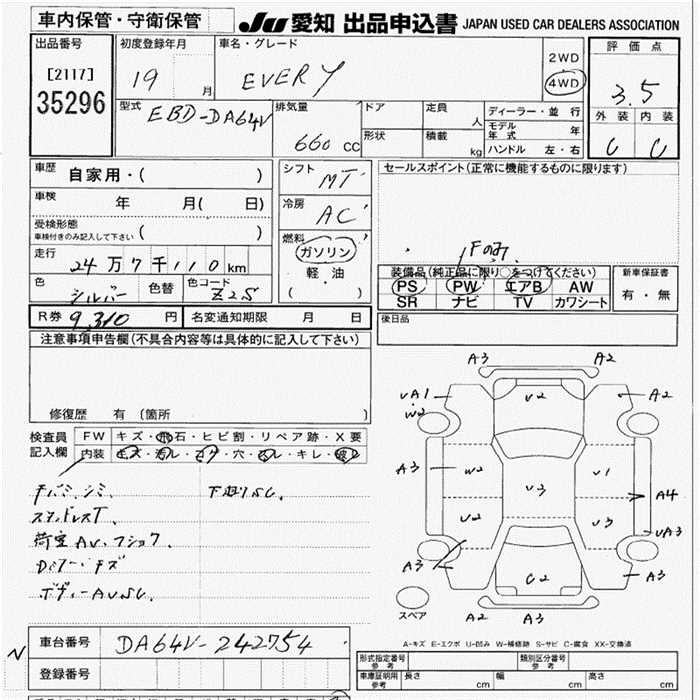 車内保管・守衛保管
JU 愛知 出品申込書 JAPAN USED CAR DEALERS ASSOCIATION
出品番号
[2117]
35296
初度登録年月
19 月
車名・グレード
EVERY
2WD
4WD
評価点
3.5
外装 内装
C C
型式
EBD-DA64V
排気量
660 cc
ドア
定員 人
形状
積載 kg
ディーラー・並行
モデル年式 年
ハンドル 左・右
車歴
自家用・( )
車検 年 月( 日)
受検形態
車検付きのみ記入して下さい ( )
走行
24万7千110km
色
シルバー
色替
色コード
Z2S
シフト
MT
冷房
AC
燃料
ガソリン
軽油
( )
セールスポイント(正常に機能するものに限ります)
Fのみ
装備品(純正品に限り○をつけてください)
PS PW エアB AW
SR ナビ TV カワシート
新車保証書
有・無
R券 9,310 円
名変通知期限 月 日
後日品
注意事項申告欄(不具合内容等は具体的に記入して下さい)
修復歴 有(箇所 )
検査員
記入欄
FW キズ・飛石・ヒビ割・リペア跡・X要
内装 キズ・汚レ・コゲ・穴・スレ・キレ・破レ
スタッドレスT.
下廻りSC.
ボディーAUSC.
A3 A2
UA1 U2 A2
W2
A3 W2 U1
U3 A4
U2 U3 UA3
A3 C2 A3
スペア
A2 A3
A-キズ E-エクボ U-凹み W-補修跡 S-サビ C-腐食 XX-交換済
N
車台番号 DA64V-242754
登録番号
形式指定番号 参考
類別区分番号 参考
車庫証明用 参考 長さ cm 幅 cm 高さ cm